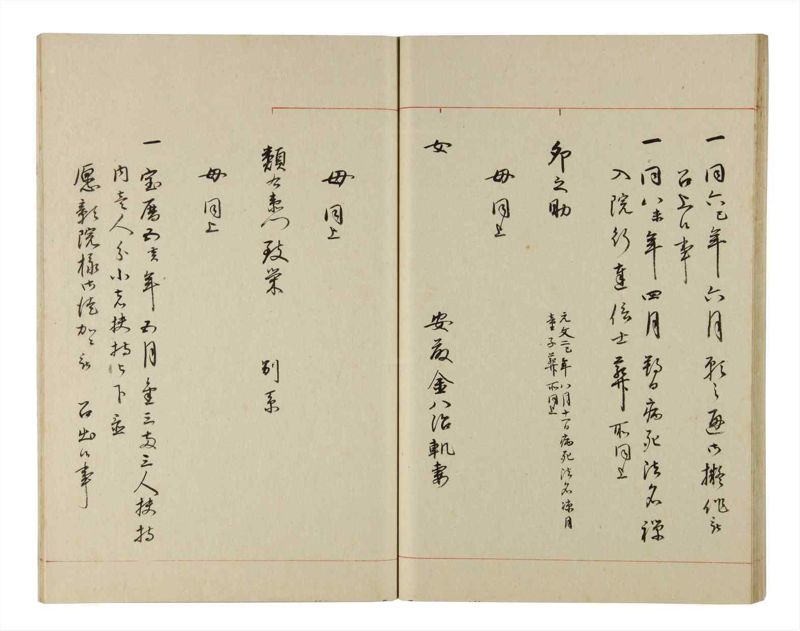 一同六巳年六月願之通御擬作被
召上候事
一同八未年四月 病死法名禅
入院行達信士葬所同上
卯之助
元文二巳年八月十一日病死法名涼月
童子葬所同上
母同上
女
安藤金八治軌妻
母同上
類右衛門致栄
別系
母同上
一宝暦五亥年五月金三両三人扶持
内壱人分小者扶持被下置
様御徒 被召出候事